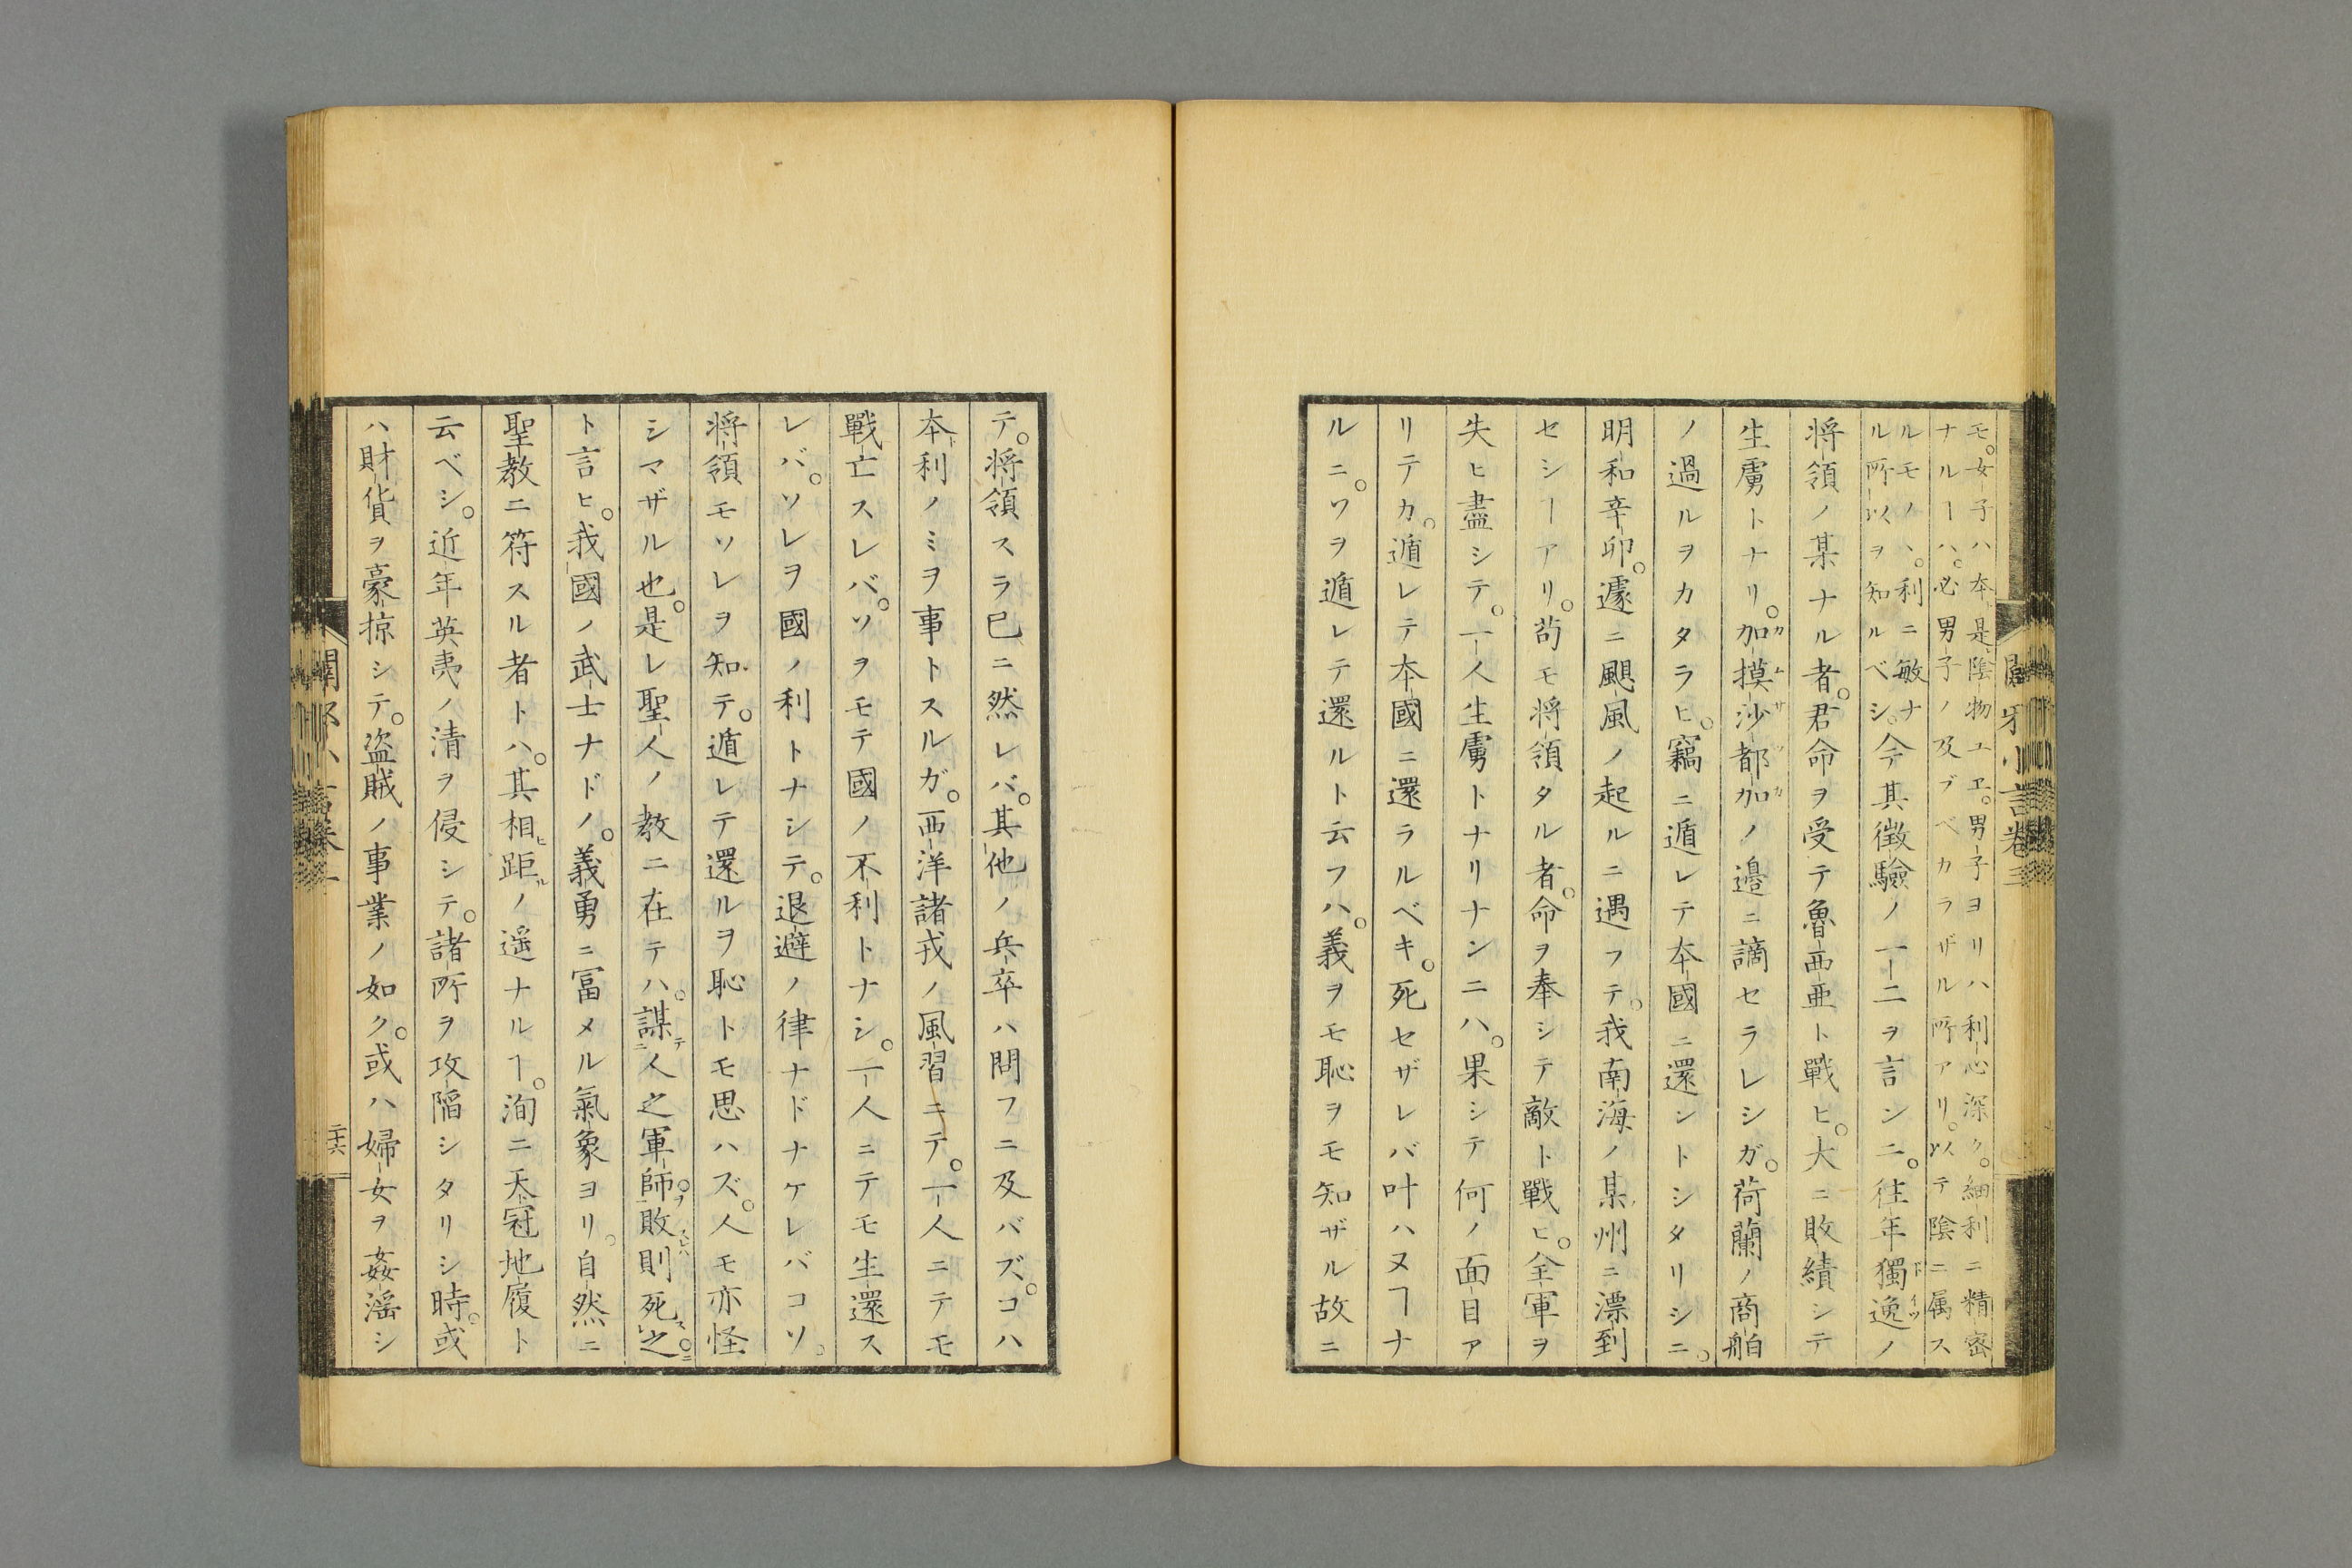 モ。女子ハ本是陰物ユヱ。男子ヨリハ利心深ク。細利ニ精密
ナルヿハ。必男子ノ及ブベカラザル所アリ。以テ陰ニ属ス
ルモノヽ。利ニ敏ナ
ル所以ヲ知ルベシ。今其徴驗ノ一二ヲ言ンニ。往年獨逸ノ
将領ノ某ナル者。君命ヲ受テ魯西亜ト戰ヒ。大ニ敗績シテ
生虜トナリ。加摸沙都加ノ邉ニ謫セラレシガ。荷蘭ノ商舶
ノ過ルヲカタラヒ。竊ニ遁レテ本國ニ還ントシタリシニ。
明和辛卯。遽ニ颶風ノ起ルニ遇フテ。我南海ノ某州ニ漂到
セシヿアリ。苟モ将領タル者。命ヲ奉シテ敵ト戰ヒ。全軍ヲ
失ヒ盡シテ。一人生虜トナリナンニハ。果シテ何ノ面目ア
リテカ。遁レテ本國ニ還ラルベキ。死セザレバ叶ハヌヿナ
ルニ。ソヲ遁レテ還ルト云フハ。義ヲモ恥ヲモ知ザル故ニ
テ。将領スラ已ニ然レバ。其他ノ兵卒ハ問フニ及バズ。コハ
本利ノミヲ事トスルガ。西洋諸戎ノ風習ニテ。一人ニテモ
戰亡スレバ。ソヲモテ國ノ不利トナシ。一人ニテモ生還ス
レバ。ソレヲ國ノ利トナシテ。退避ノ律ナドナケレバコソ。
将領モソレヲ知テ。遁レテ還ルヲ恥トモ思ハズ。人モ亦怪
シマザル也。是レ聖人ノ教ニ在テハ。謀人之軍師。敗則死之。
ト言ヒ。我國ノ武士ナドノ。義勇ニ冨メル氣象ヨリ。自然ニ
聖教ニ符スル者トハ。其相距ノ遥ナルヿ。洵ニ天冠地履ト
云ベシ。近年英夷ノ清ヲ侵シテ。諸所ヲ攻陷シタリシ時。或
ハ財貨ヲ豪掠シテ。盗賊ノ事業ノ如ク。或ハ婦女ヲ姦滛シ
二十六